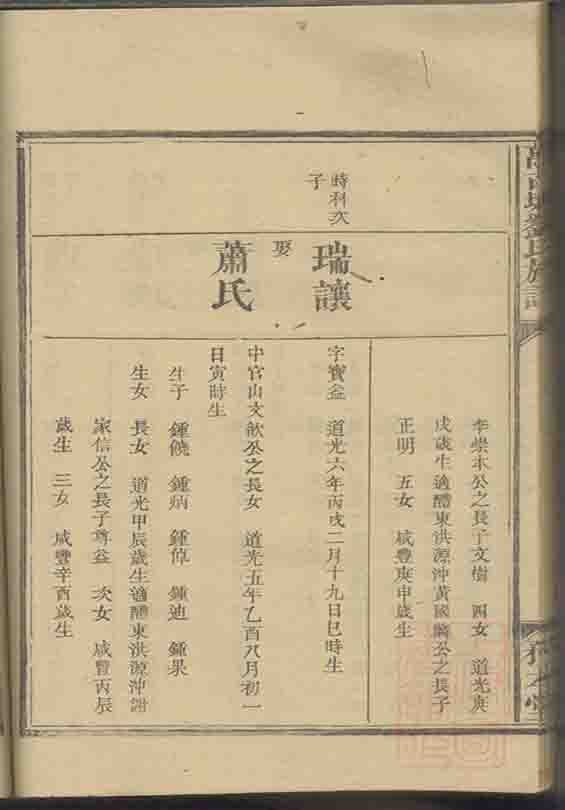 劉氏族譜
李崇本公之長子文樹 四女 道光庚
戌歲生適醴東洪源沖黃國 公之長子
正明 五女 咸豊庚申歲生
時科次
子
瑞讓
字寶益 道光六年丙戌二月十九日巳時生
娶
蕭氏
中官山文歆公之長女 道光五年乙酉八月初一
日寅時生
生子 鍾饒 鍾炳 鍾倬 鍾迪 鍾果
生女 長女 道光甲辰歲生適醴東洪源沖謝
家信公之長子尊益 次女 咸豐丙辰
歲生 三女 咸豐辛酉歲生